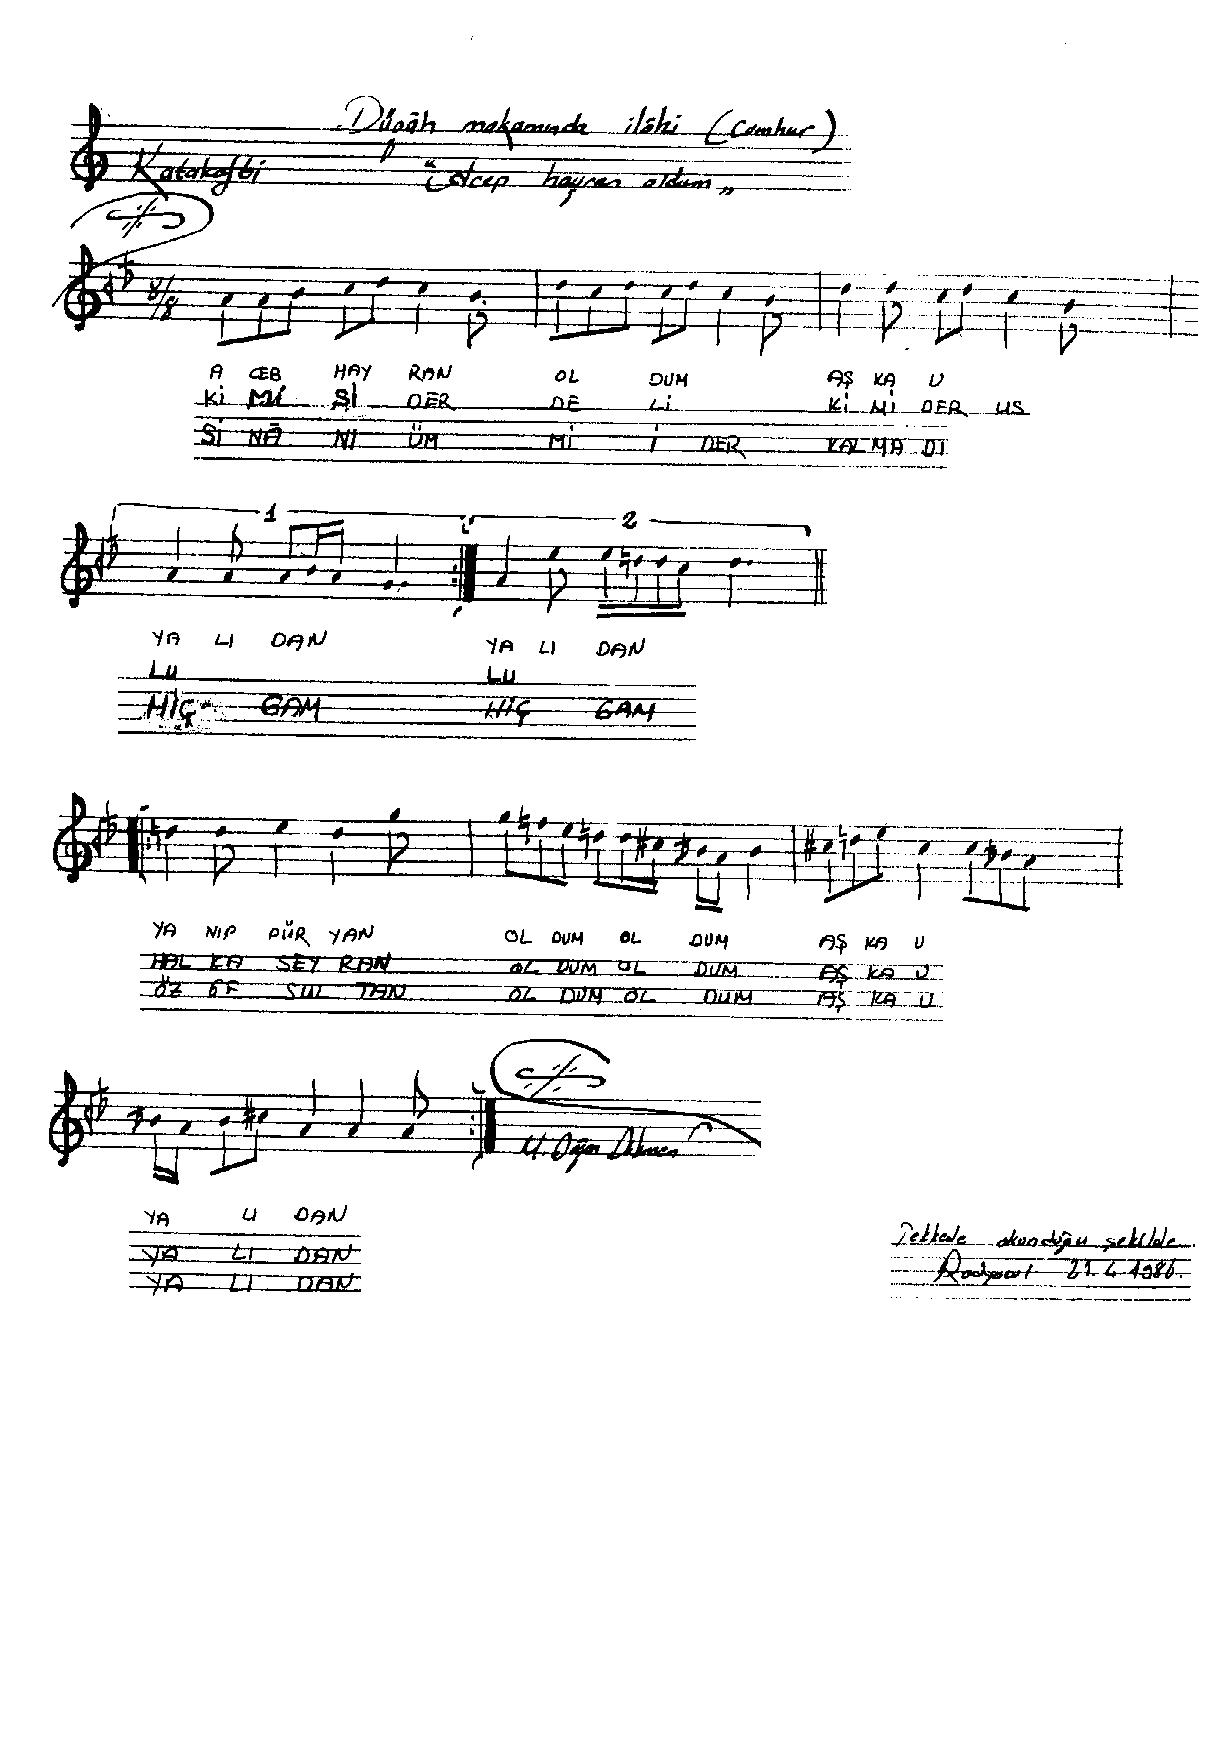 Dügâh makamında ilâhi (Cumhur)
Katakofti "Acep hayran oldum"
8/8
A CEB HAY RAN OL DUM AŞ KA U
Kİ Mİ Sİ DER DE Lİ Kİ Mİ DER US
Sİ NÂ NI ÜM Mİ İ DER KAL MA DI
1 2
YA LI DAN YA LI DAN
LU LU
HİÇ GAM HİÇ GAM
YA NIP PÜR YAN OL DUM OL DUM AŞ KA U
HAL KA SEY RAN OL DUM OL DUM AŞ KA U
ÖZ GE SUL TAN OL DUM OL DUM AŞ KA U
YA LI DAN
YA LI DAN
YA LI DAN
Tekkede okunduğu şekilde
21.4.1986.